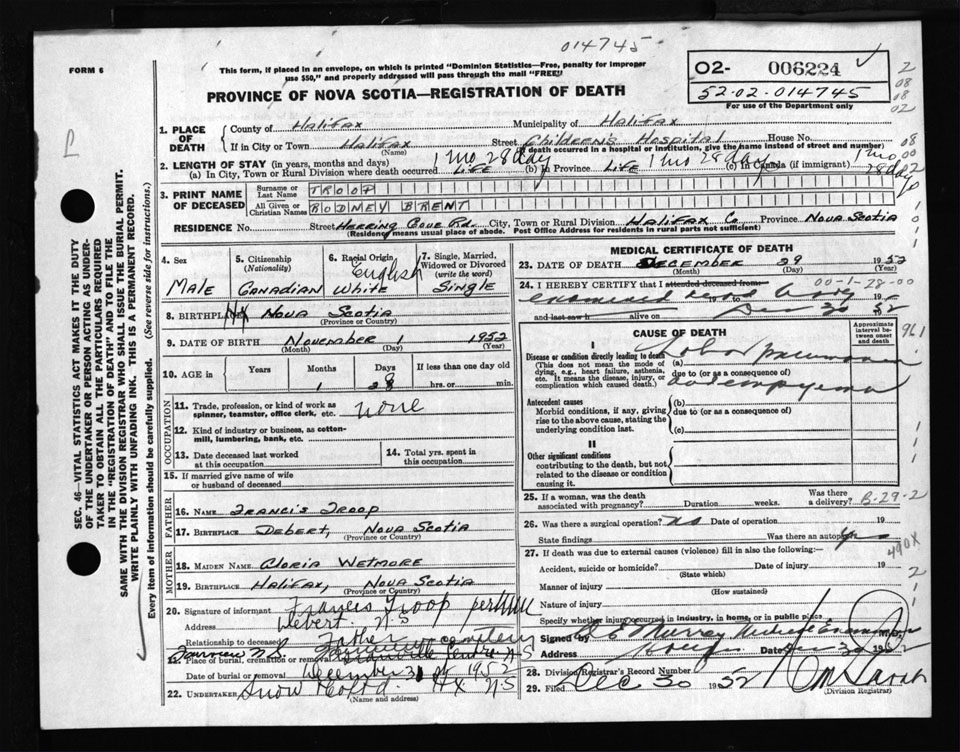 014745
FORM 6
This form, if placed in an envelope, on which is printed "Dominion Statistics—Free, penalty for improper
use $50," and properly addressed will pass through the mail "FREE"
O2- 006224
52-02-014745
For use of the Department only
PROVINCE OF NOVA SCOTIA—REGISTRATION OF DEATH
1. PLACE OF DEATH
County of Halifax Municipality of Halifax
If in City or Town Halifax Street Children's Hospital House No.
(Name) (If death occurred in a hospital or institution, give the name instead of street and number)
2. LENGTH OF STAY (in years, months and days) 1 mo 28 day 1 mo 28 days 1 mo 28 days
(a) In City, Town or Rural Division where death occurred Life (b) in Province Life (c) in Canada (if immigrant)
3. PRINT NAME OF DECEASED
Surname or Last Name TROOP
All Given or Christian Names RODNEY BRENT
RESIDENCE No. Street Herring Cove Rd. City, Town or Rural Division Halifax Co Province Nova Scotia
(Residence means usual place of abode. Post Office Address for residents in rural parts not sufficient)
4. Sex
Male
5. Citizenship (Nationality)
Canadian
6. Racial Origin
English
White
7. Single, Married, Widowed or Divorced (write the word)
Single
8. BIRTHPLACE Hx Nova Scotia
(Province or Country)
9. DATE OF BIRTH November 1 1952
(Month) (Day) (Year)
10. AGE in Years Months Days If less than one day
1 28 hrs. or min.
OCCUPATION
11. Trade, profession, or kind of work as spinner, teamster, office clerk, etc. none
12. Kind of industry or business, as cotton-mill, lumbering, bank, etc.
13. Date deceased last worked at this occupation
14. Total yrs. spent in this occupation
15. If married give name of wife or husband of deceased
FATHER
16. Name Francis Troop
17. BIRTHPLACE Debert, Nova Scotia
(Province or Country)
MOTHER
18. MAIDEN NAME Gloria Wetmore
19. BIRTHPLACE Halifax, Nova Scotia
(Province or Country)
20. Signature of informant Francis Troop per
Address Debert. N.S
Relationship to deceased Father
cemetery
Fairview N.S.
21. Place of burial, cremation or removal
Date of burial or removal December 31 1952
22. UNDERTAKER Snow & Co Ltd. Hx N.S
(Name and address)
MEDICAL CERTIFICATE OF DEATH
23. DATE OF DEATH December 29 1952
(Month) (Day) (Year)
24. I HEREBY CERTIFY that I attended deceased from: 00-1-28-00
examined dead body
to Dec 30 1952
and last saw h alive on
CAUSE OF DEATH
Approximate interval between onset and death
961
I
Disease or condition directly leading to death
(This does not mean the mode of dying, e.g., heart failure, asthenia, etc. It means the disease, injury, or complication which caused death.)
(a) Lobar pneumonia
due to (or as a consequence of)
and empyema
Antecedent causes
Morbid conditions, if any, giving rise to the above cause, stating the underlying condition last.
(b)
due to (or as a consequence of)
(c)
II
Other significant conditions
contributing to the death, but not related to the disease or condition causing it.
25. If a woman, was the death associated with pregnancy? Duration weeks. Was there a delivery? B-29-2
26. Was there a surgical operation? No Date of operation 19
State findings Was there an autopsy? yes
490X
27. If death was due to external causes (violence) fill in also the following:—
Accident, suicide or homicide? Date of injury 19
(State which)
Manner of injury
(How sustained)
Nature of injury
Specify whether injury occurred in industry, in home, or in public place
Signed by Murray Medical Examiner M.D.
Address Date Dec 30 1952
28. Division Registrar's Record Number
29. Filed Dec 30 1952
(Division Registrar)
SEC. 46—VITAL STATISTICS ACT MAKES IT THE DUTY
OF THE UNDERTAKER OR PERSON ACTING AS UNDER-
TAKER TO OBTAIN ALL THE PARTICULARS REQUIRED
IN THE "REGISTRATION OF DEATH" AND TO FILE THE
SAME WITH THE DIVISION REGISTRAR WHO SHALL ISSUE THE BURIAL PERMIT.
WRITE PLAINLY WITH UNFADING INK. THIS IS A PERMANENT RECORD.
Every item of information should be carefully supplied. (See reverse side for instructions.)